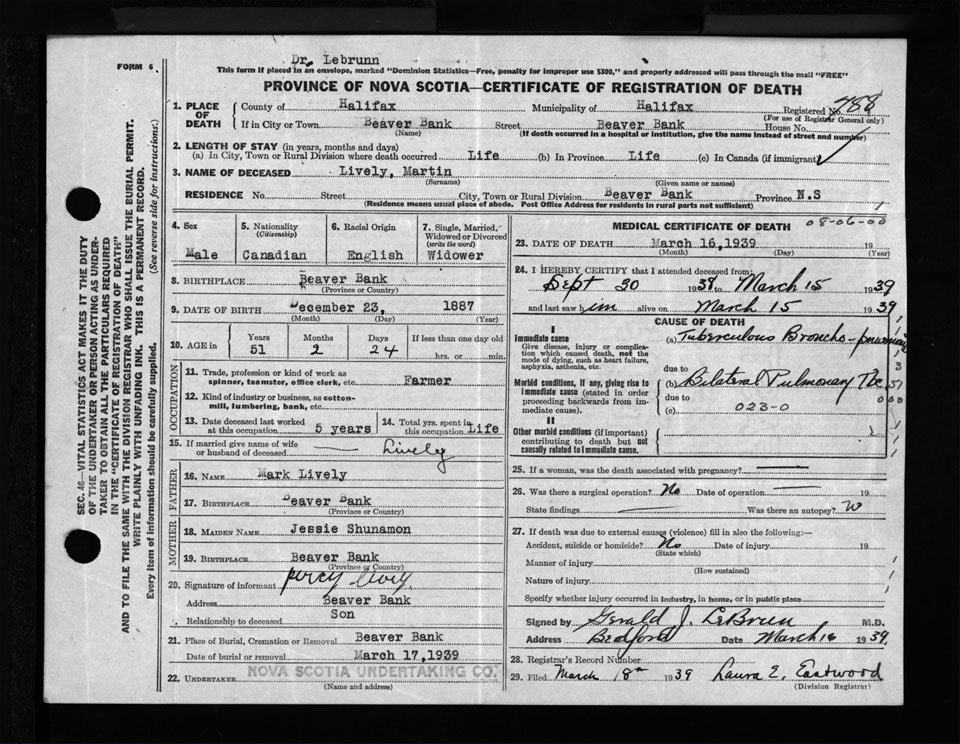 Dr. Lebrunn
FORM 6.
This form if placed in an envelope, marked "Dominion Statistics—Free, penalty for improper use $300," and properly addressed will pass through the mail "FREE"
PROVINCE OF NOVA SCOTIA—CERTIFICATE OF REGISTRATION OF DEATH
1. PLACE OF DEATH County of Halifax Municipality of Halifax Registered No. 788
(For use of Registrar General only)
If in City or Town Beaver Bank Street Beaver Bank House No.
(Name) (If death occurred in a hospital or institution, give the name instead of street and number)
2. LENGTH OF STAY (in years, months and days)
(a) In City, Town or Rural Division where death occurred Life (b) In Province Life (c) In Canada (if immigrant)
3. NAME OF DECEASED Lively, Martin
(Surname) (Given name or names)
RESIDENCE No. Street City, Town or Rural Division Beaver Bank Province N.S
(Residence means usual place of abode. Post Office Address for residents in rural parts not sufficient)
4. Sex 5. Nationality (Citizenship) 6. Racial Origin 7. Single, Married, Widowed or Divorced (write the word)
Male Canadian English Widower
8. BIRTHPLACE Beaver Bank
(Province or Country)
9. DATE OF BIRTH December 23, 1887
(Month) (Day) (Year)
10. AGE in Years Months Days If less than one day old
51 2 24 hrs. or min.
OCCUPATION
11. Trade, profession or kind of work as spinner, teamster, office clerk, etc. Farmer
12. Kind of industry or business, as cotton-mill, lumbering, bank, etc.
13. Date deceased last worked at this occupation 5 years 14. Total yrs. spent in this occupation Life
15. If married give name of wife or husband of deceased Lively
FATHER
16. NAME Mark Lively
17. BIRTHPLACE Beaver Bank
(Province or Country)
MOTHER
18. MAIDEN NAME Jessie Shunamon
19. BIRTHPLACE Beaver Bank
(Province or Country)
20. Signature of informant Percy Lively
Address Beaver Bank
Relationship to deceased Son
21. Place of Burial, Cremation or Removal Beaver Bank
Date of burial or removal March 17, 1939
22. UNDERTAKER NOVA SCOTIA UNDERTAKING CO.
(Name and address)
08-06-00
MEDICAL CERTIFICATE OF DEATH
23. DATE OF DEATH March 16, 1939 19
(Month) (Day) (Year)
24. I HEREBY CERTIFY that I attended deceased from
Sept 30 1938 to March 15 1939
and last saw him alive on March 15 1939
CAUSE OF DEATH
I
Immediate cause (a) Tuberculous Broncho-pneumonia
Give disease, injury or complication which caused death, not the mode of dying, such as heart failure, asphyxia, asthenia, etc.
due to
Morbid conditions, if any, giving rise to immediate cause (stated in order proceeding backwards from immediate cause). (b) Bilateral Pulmonary Tbc.
due to
(c) 023-0
II
Other morbid conditions (if important) contributing to death but not causally related to immediate cause.
25. If a woman, was the death associated with pregnancy?
26. Was there a surgical operation? No Date of operation 19
State findings Was there an autopsy?
27. If death was due to external causes (violence) fill in also the following:—
Accident, suicide or homicide? No Date of injury 19
(State which)
Manner of injury
(How sustained)
Nature of injury
Specify whether injury occurred in industry, in home, or in public place
Signed by Gerald J. LeBrun M.D.
Address Bedford Date March 16 1939
28. Registrar's Record Number
29. Filed March 18th 1939 Laura E. Eastwood
(Division Registrar)
SEC. 46—VITAL STATISTICS ACT MAKES IT THE DUTY
OF THE UNDERTAKER OR PERSON ACTING AS UNDER-
TAKER TO OBTAIN ALL THE PARTICULARS REQUIRED
IN THE "CERTIFICATE OF REGISTRATION OF DEATH"
AND TO FILE THE SAME WITH THE DIVISION REGISTRAR WHO SHALL ISSUE THE BURIAL PERMIT.
WRITE PLAINLY WITH UNFADING INK. THIS IS A PERMANENT RECORD.
Every item of information should be carefully supplied. (See reverse side for instructions.)